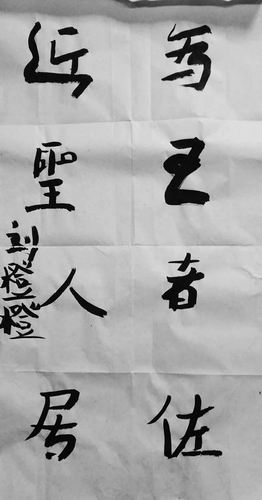 为王者佐
近聖人居
刘橙橙